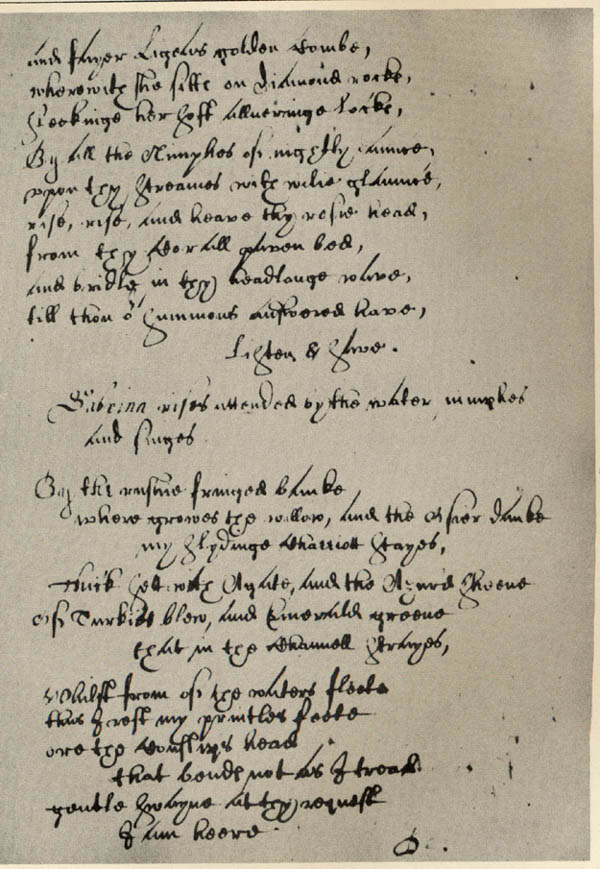 and fayer Ligeas golden Combe,
wherewith she sitts on diamond rocks,
Sleekinge her soft alluringe locks,
By all the Nimphes of nightly daunce,
vpon thy streames with wilie glaunce,
rise, rise, and heave thy rosie head,
from thy Corall paven bed,
and bridle in thy headlonge wave,
till thou oʳ summons answered have,
Listen & save.
Sabrina rises attended by the water nimphes
and singes
By the rushie fringed banke
where growes the willow, and the Osier danke
my slydinge Charriott stayes,
Thick sett with Agate, and the Azur'd sheene
Of Turkis blew, and Emerald greene
that in the Channell strayes,
Whilst from of the waters fleete
thus I rest my printles feete
ore the Couslips head
that bends not as I tread
gentle swayne at thy request
I am heere